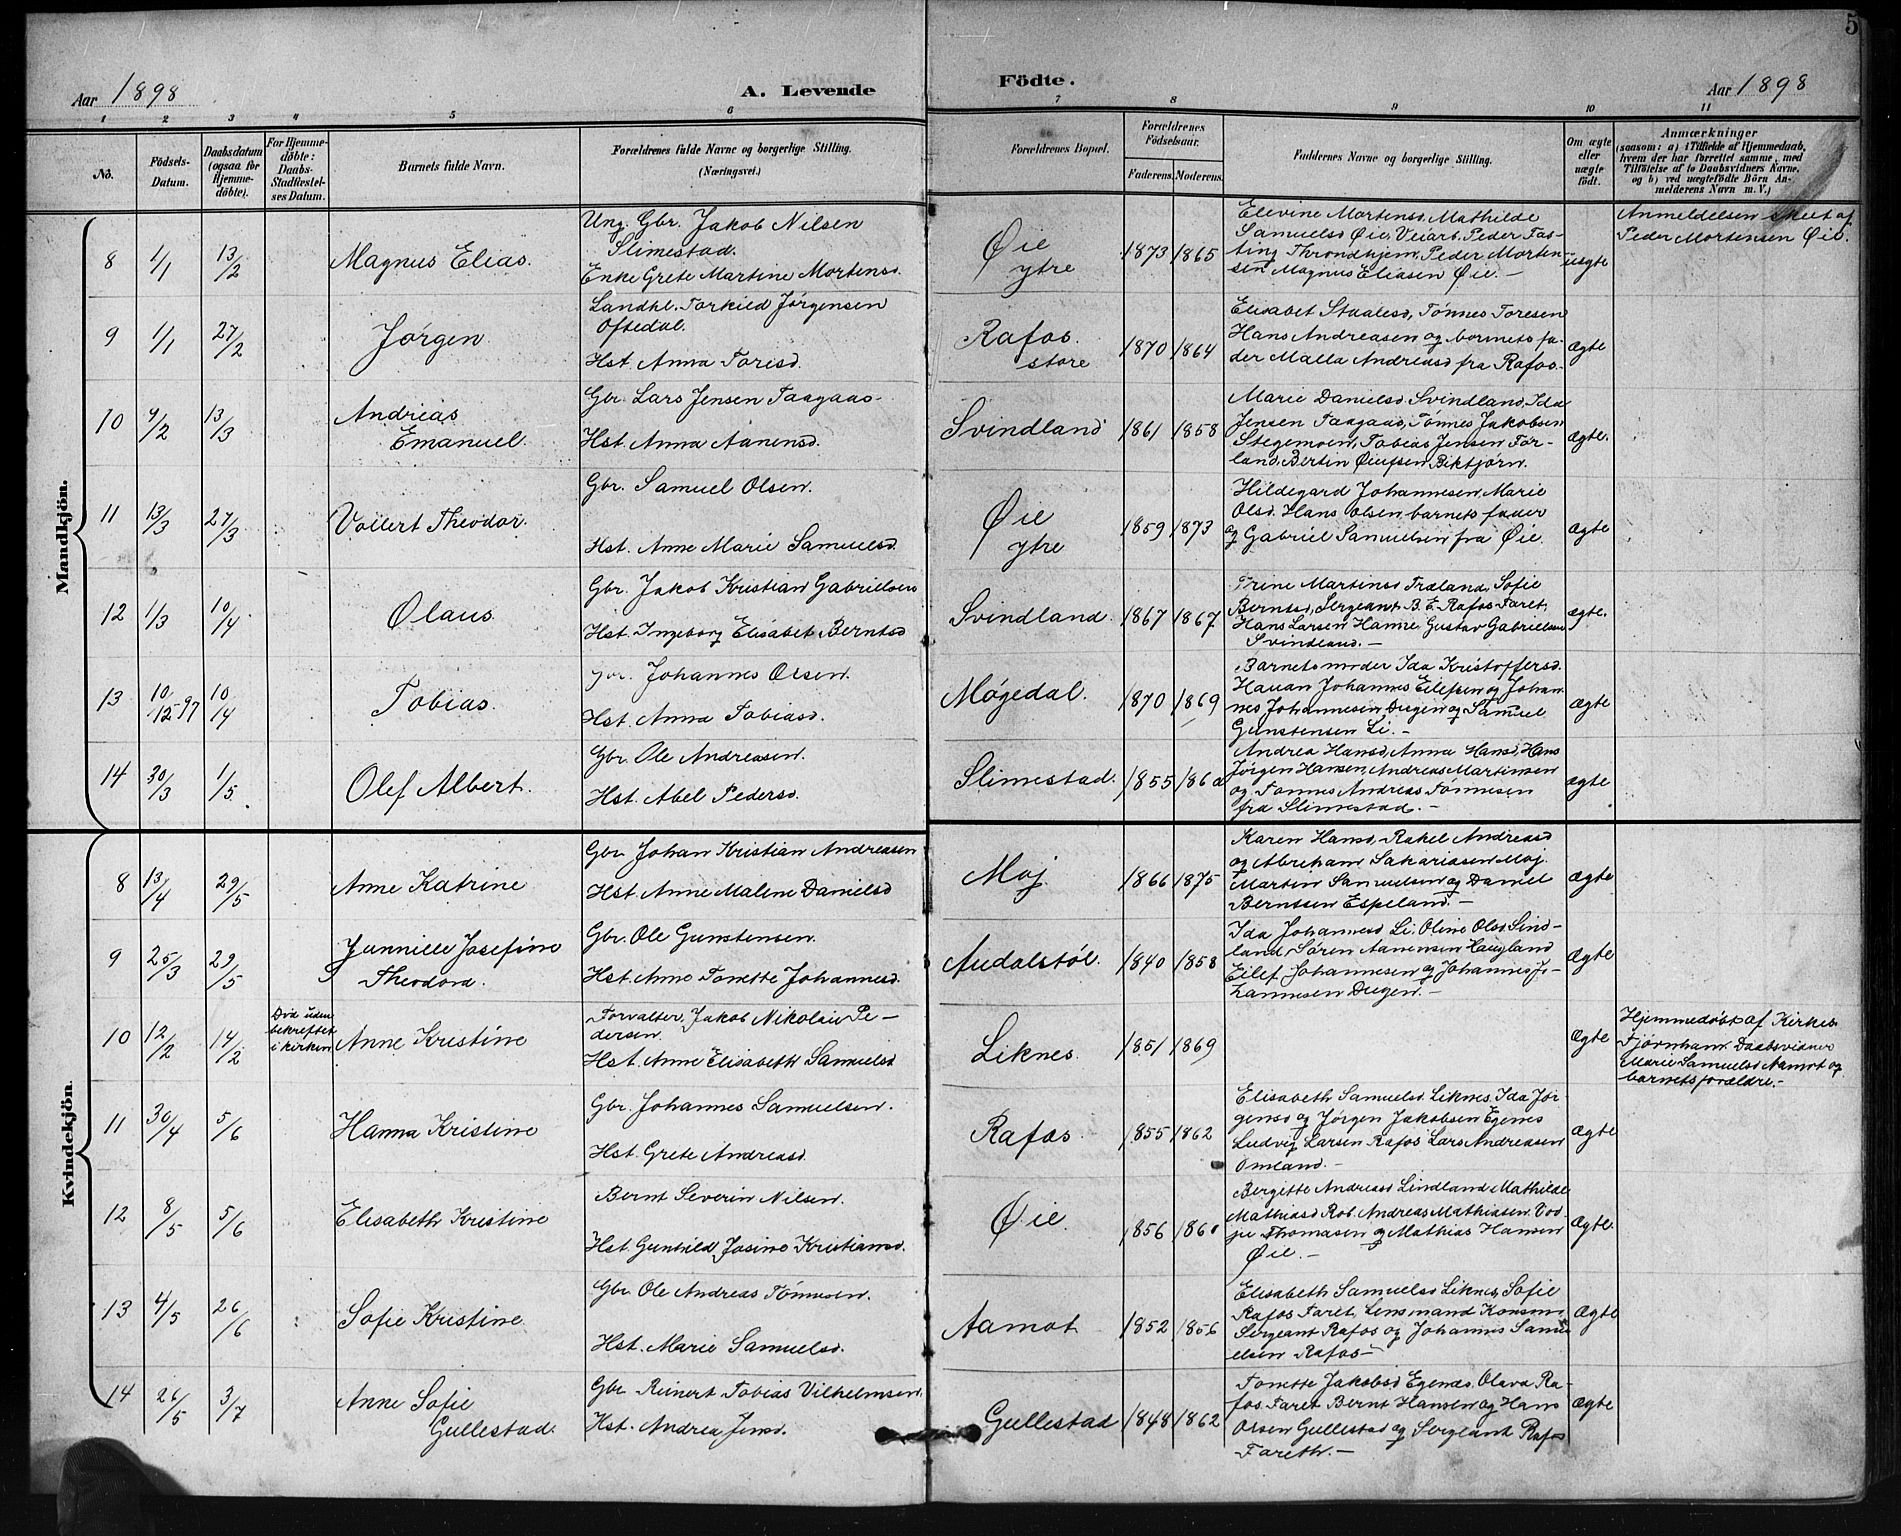 5
Aar 1898
A. Levende
Födte.
Aar 1898
1 2 3 4 5 6 7 8 9 10 11
No.
Födsels-Datum.
Daabsdatum (ogsaa for Hjemmedöbte).
For Hjemmedöbte: Daabs-Stadfæstelses Datum.
Barnets fulde Navn.
Forældrenes fulde Navne og borgerlige Stilling. (Næringsvei.)
Forældrenes Bopæl.
Forældrenes Födselsaar.
Faderens. Moderens.
Faddernes Navne og borgerlige Stilling.
Om ægte eller uægte födt.
Anmærkninger
(saasom: a) i Tilfælde af Hjemmedaab, hvem der har forrettet samme, med Tilföielse af to Daabsvidners Navne, og b) ved uægtefödte Börn Anmelderens Navn m. V.)
Mandkjön.
8 1/1 13/2 Magnus Elias.
Ung. Gbr. Jakob Nilsen
Slimestad.
Enke Grete Martine Mortensd.
Øie
ytre
1873 1865
Elevine Mortensd, Mathilde
Samuelsd Øie, Veiarb. Peder Fas-
ting Throndhjem, Peder Morten-
sen Magnus Eliasen Øie.-
uægte
Anmeldelsen skeet af
Peder Mortensen Øie.
9 1/1 27/2 Jørgen
Landhl. Torkild Jørgensen
Oftedal.
Hst. Anna Toresd.
Rafos.
store
1870 1864
Elisabet Staalesd, Tønnes Toresen
Hans Andreasen og barnets fa-
der Malla Andreasd fra Rafos.
Ægte
10 4/2 13/3 Andreas
Emanuel.
Gbr. Lars Jensen Faagaas
Hst. Anna Aanensd.
Svindland
1861 1858
Marie Danielsd Svindland, Ida
Jensen Faagaas, Tønnes Jakobsen
Stegemoen, Tobias Jensen Før-
land, Bertin Biktjørn.
Ægte.
11 13/3 27/3 Vollert Theodor.
Gbr. Samuel Olsen.
Hst. Anne Marie Samuelsd.
Øie
ytre
1859 1873
Hildegard Johannesen, Marie
Olsd. Hans Olsen, barnets fader
og Gabriel Samuelsen fra Øie.
Ægte
12 1/3 10/4 Olaus
Gbr. Jakob Kristian Gabrielsen
Hst. Ingeborg Elisabet Berntsd
Svindland.
1867 1867
Trine Martinsd Træland, Sofie
Berntsd, Sergeant B. E. Rafos Faret,
Hans Larsen Hamre, Gustav Gabrielsen
Svindland.-
Ægte.
13 10/12-97 10/4 Tobias.
Gbr. Johannes Olsen.
Hst. Anna Tobiasd.
Møgedal.
1870 1869
Barnets moder Ida Kristoffersd.
Hauan Johannes Eilefsen og Johan
nes Johannesen Dugen og Samuel
Gunstensen Li.-
Ægte
14 30/3 1/5 Olef Albert.
Gbr. Ole Andreasen.
Hst. Abel Pedersd.
Slimestad.
1855 1860
Andrea Hansd, Anna Hansd, Hans
Jørgen Hansen, Andreas Martinsen
og Tønnes Andreas Tønnesen
fra Slimestad.-
Ægte
Kvindekjön.
8 13/4 29/5 Anne Katrine
Gbr. Johan Kristian Andreasen
Hst. Anne Malene Danielsd
Moj
1866 1875
Karen Hansd, Rakel Andreasd
og Abreham Sakariasen Moj
Martin Samuelsen og Daniel
Berntsen Espeland.-
Ægte
9 25/3 29/5 Josefine
Theodora.
Gbr. Ole Gunstensen.
Hst. Anne Tonette Johannesd.
Audalstøl.
1840 1858
Ida Johannesd Li, Oline Olsd Sind-
land, Søren Aanensen Haugland
Eilef Johannesen og Johannes Jo-
hannesen Dugen.-
Ægte
10 12/2 14/2
Død uden
bekræftet
i kirken
Anne Kristine
Forvalter, Jakob Nikolai Pe-
dersen.
Hst. Anne Elisabeth Samuelsd
Liknes.
1851 1869
Ægte
Hjemmedøbt af Kirkes.
Fjørnham. Daabsvidner
Marie Samuelsd Aamot og
barnets forældre.-
11 30/4 5/6 Hanna Kristine
Gbr. Johannes Samuelsen.
Hst. Grete Andreasd.
Rafos.
1855 1862
Elisabeth Samuelsd Liknes, Ida Jør-
gensd og Jørgen Jakobsen Egenes
Ludvig Larsen Rafos Lars Andreasen
Omland.-
Ægte
12 8/5 5/6 Elisabeth Kristine
Bernt Severin Nilsen.
Hst. Gunhild Josine Kristiansd.
Øie.
1856 1860
Bergitte Andreasd Lindland Mathilde
Mathiasd Rob. Andreas Mathiasen
Thomasen og Mathias Hansen
Øie.-
Ægte.
13 4/5 26/6 Sofie Kristine
Gbr. Ole Andreas Tønnesen.
Hst. Marie Samuelsd.
Aamot
1852 1856
Elisabeth Samuelsd Liknes, Sofie
Rafos Faret, Lensmand
Sergeant Rafos og Johannes Samu
elsen Rafos-
Ægte
14 26/5 3/7 Anne Sofie
Gullestad.
Gbr. Reinert Tobias Vilhelmsen.
Hst. Andrea Jensd.
Gullestad
1848 1862
Tonette Jakobsd Egenes, Olava Ra-
fos Faret Bernt Hansen og Hans
Olsen Gullestad og Sergeant Rafos
Fareth.-
Ægte